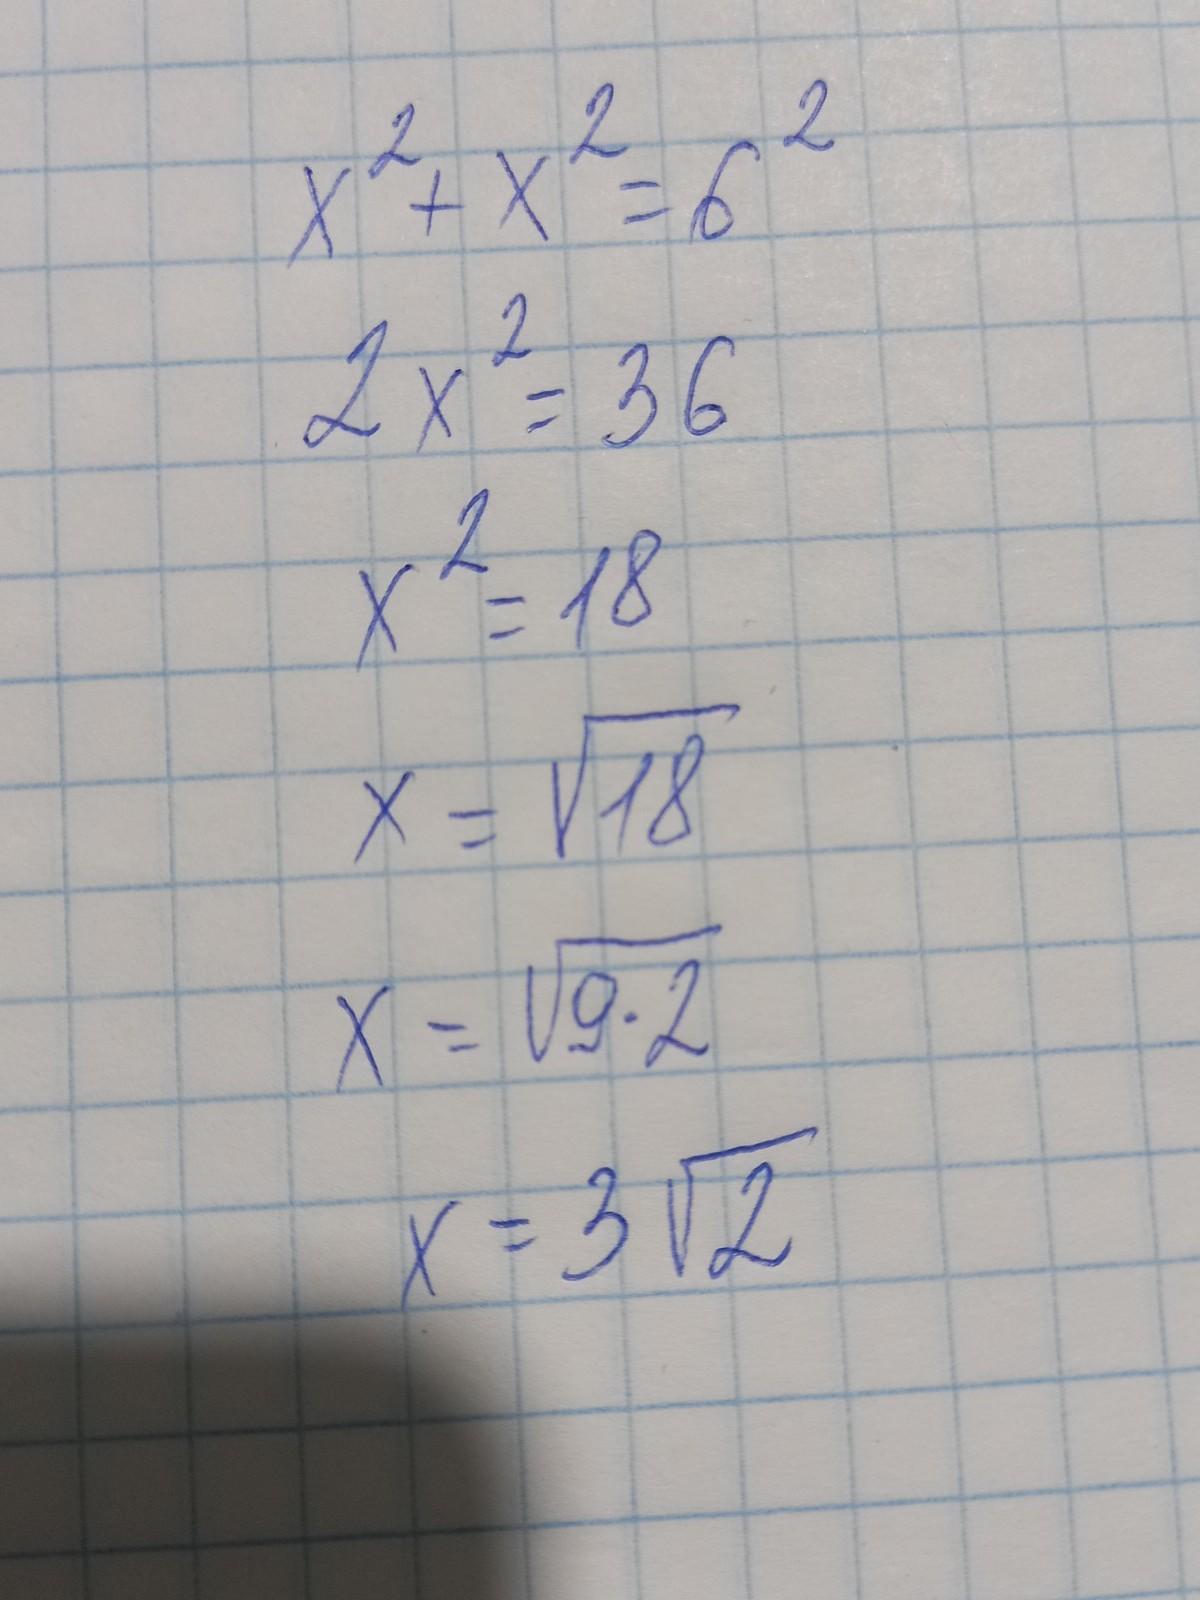 x² + x² = 6²
2x² = 36
x² = 18
x = √18
x = √9·2
x = 3√2